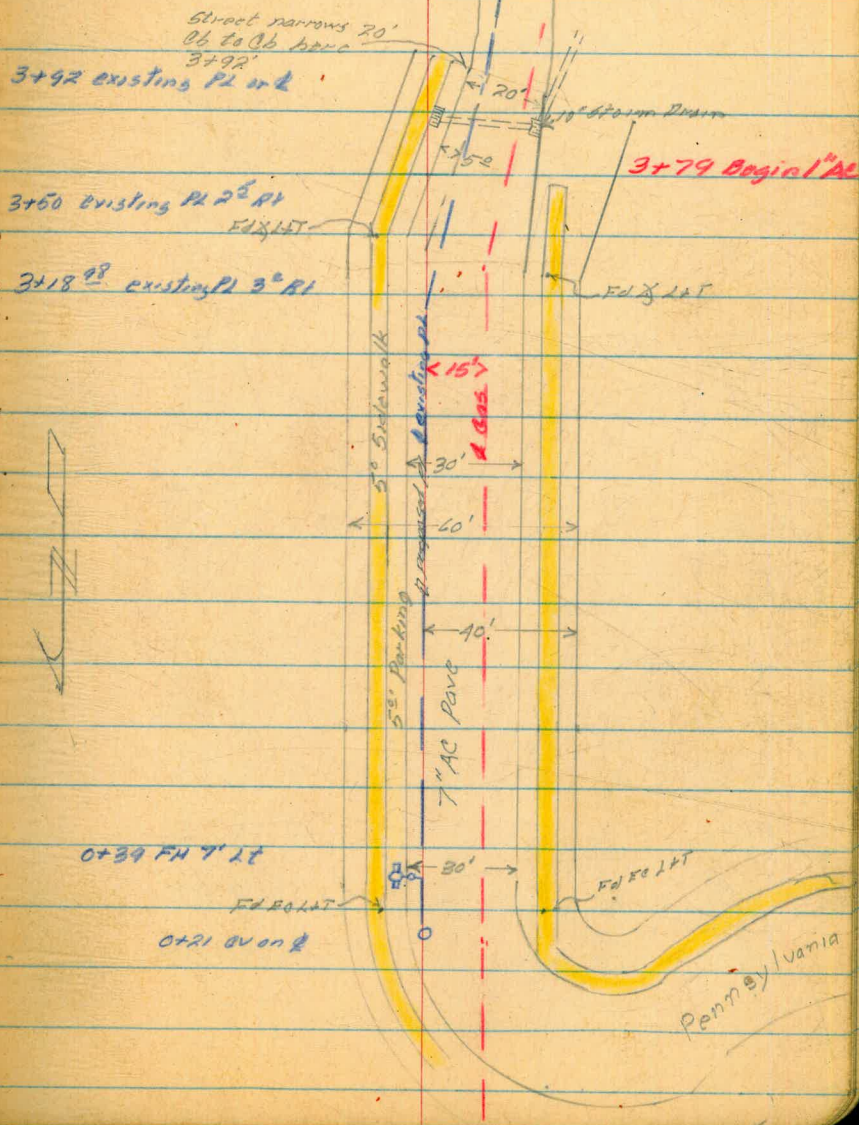 Street narrows 20'
Cb to Cb here
3+92'
3+92 existing PL on ℄
20'
10" Storm Drain
5º
3+79 Begin 1" AC
3+50 existing PL 2⁵ Rt
Fd L&T
3+18⁹⁸ existing PL 3º Rt
Fd L&T
5º Sidewalk
℄ existing PL
<15'>
℄ Gas
30'
60'
5º' Parking
40'
7" AC Pave
0+39 FH 7' Lt
30'
Fd EC L&T
Fd EC L&T
0+21 GV on ℄
Pennsylvania